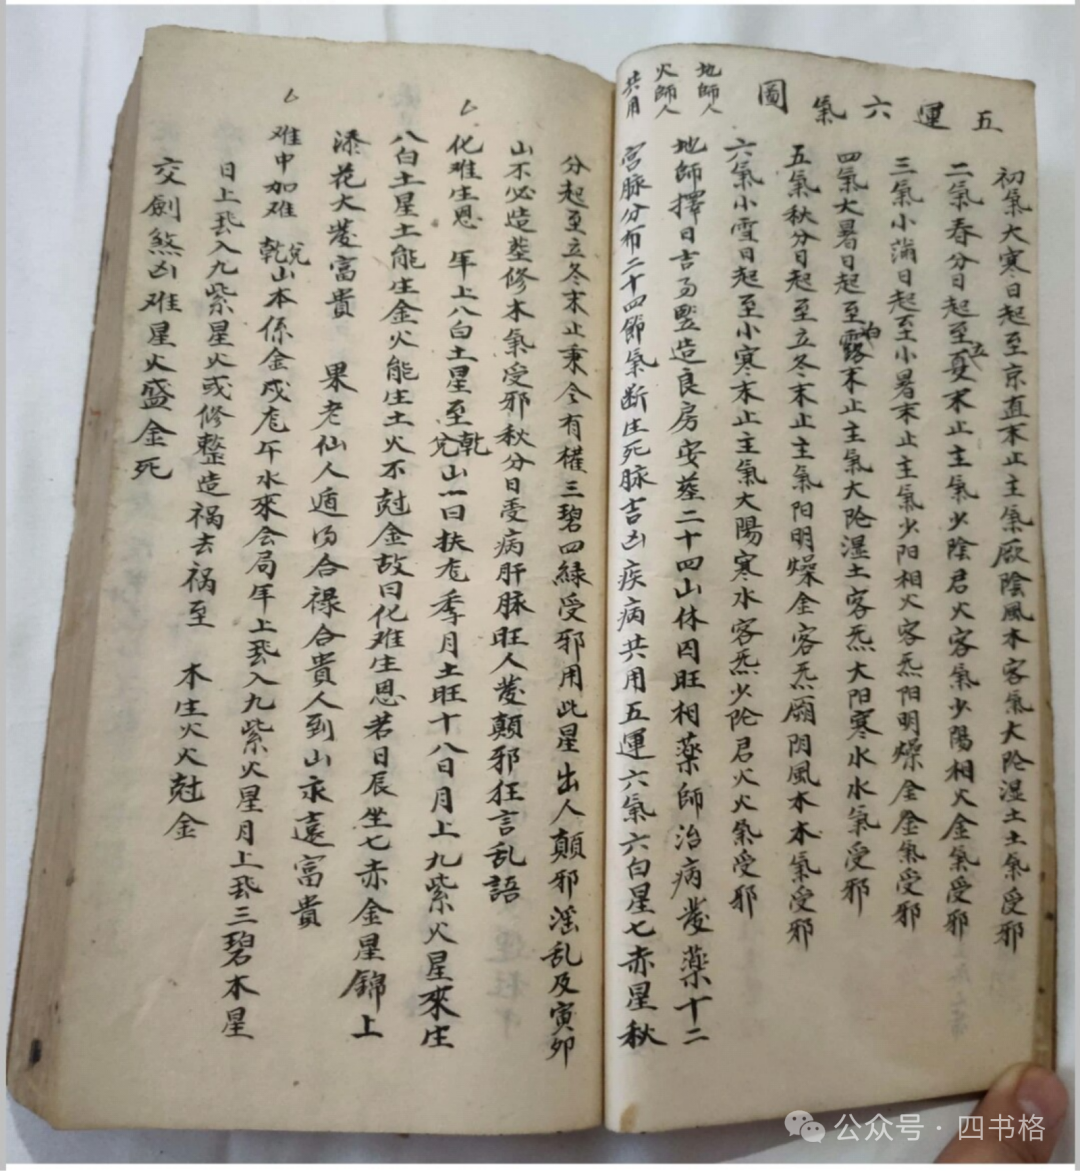 五運六氣圖
地師人
火師人
共用
初氣大寒日起至京直末止主氣厥陰風木客氣大阾湿土土氣受邪
二氣春分日起至立夏末止主氣少陰君火客氣少陽相火金氣受邪
三氣小满日起至小暑末止主氣少阳相火客炁阳明燥金金氣受邪
四氣大暑日起至白露末止主氣大阾湿土客炁大阳寒水水氣受邪
五氣秋分日起至立冬末止主氣阳明燥金客炁厥阴風木木氣受邪
六氣小雪日起至小寒末止主氣大陽寒水客炁少阾君火火氣受邪
地師擇日吉凶竪造良房安塟二十四山休囚旺相藥師治病發藥十二
宫脉分布二十四節氣断生死脉吉凶疾病共用五運六氣六白星七赤星秋
分起至立冬末止秉令有權三碧四緑受邪用此星出人顛邪滛乱及寅卯
山不必造塟修木氣受邪秋分日受病肝脉旺人發顛邪狂言乱語
化难生恩 年上八白土星至乾兌山一曰扶尨季月土旺十八日月上九紫火星來生
八白土星土能生金火能生土火不尅金故曰化难生恩若日辰坐七赤金星錦上
添花大發富貴 果老仙人遁得合禄合貴人到山永遠富貴
难中加难 乾兌山本係金成尨年水來会局年上飛入九紫火星月上飛三碧木星
日上飛入九紫星火或修整造祸去祸至 木生火火尅金
交劍煞凶难星火盛金死
公众号·四书格